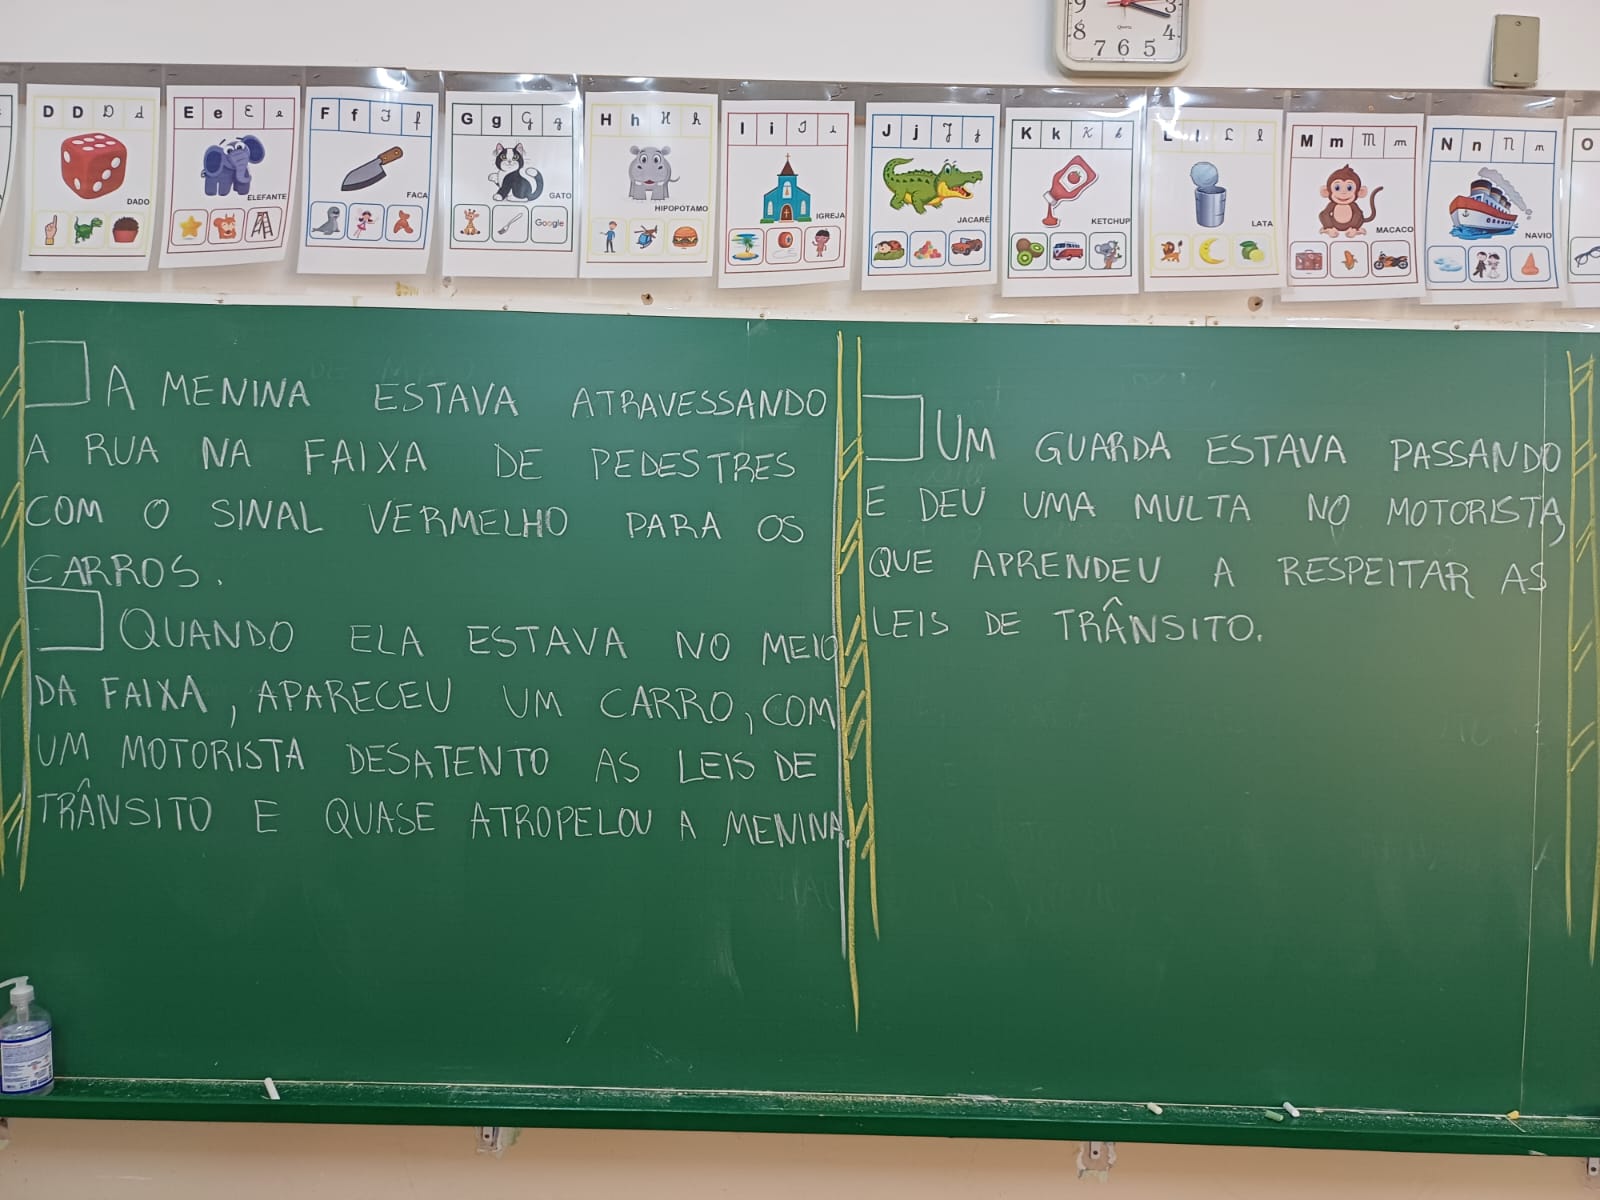 9 3
8 4
7 6 5
D D D d
DADO
E e E e
ELEFANTE
F f F f
FACA
G g G g
GATO
Google
H h H h
HIPOPÓTAMO
I i I i
IGREJA
J j J j
JACARÉ
K k K k
KETCHUP
L l L l
LATA
M m M m
MACACO
N n N n
NAVIO
O
A MENINA ESTAVA ATRAVESSANDO
A RUA NA FAIXA DE PEDESTRES
COM O SINAL VERMELHO PARA OS
CARROS.
QUANDO ELA ESTAVA NO MEIO
DA FAIXA, APARECEU UM CARRO, COM
UM MOTORISTA DESATENTO AS LEIS DE
TRÂNSITO E QUASE ATROPELOU A MENINA.
UM GUARDA ESTAVA PASSANDO
E DEU UMA MULTA NO MOTORISTA,
QUE APRENDEU A RESPEITAR AS
LEIS DE TRÂNSITO.